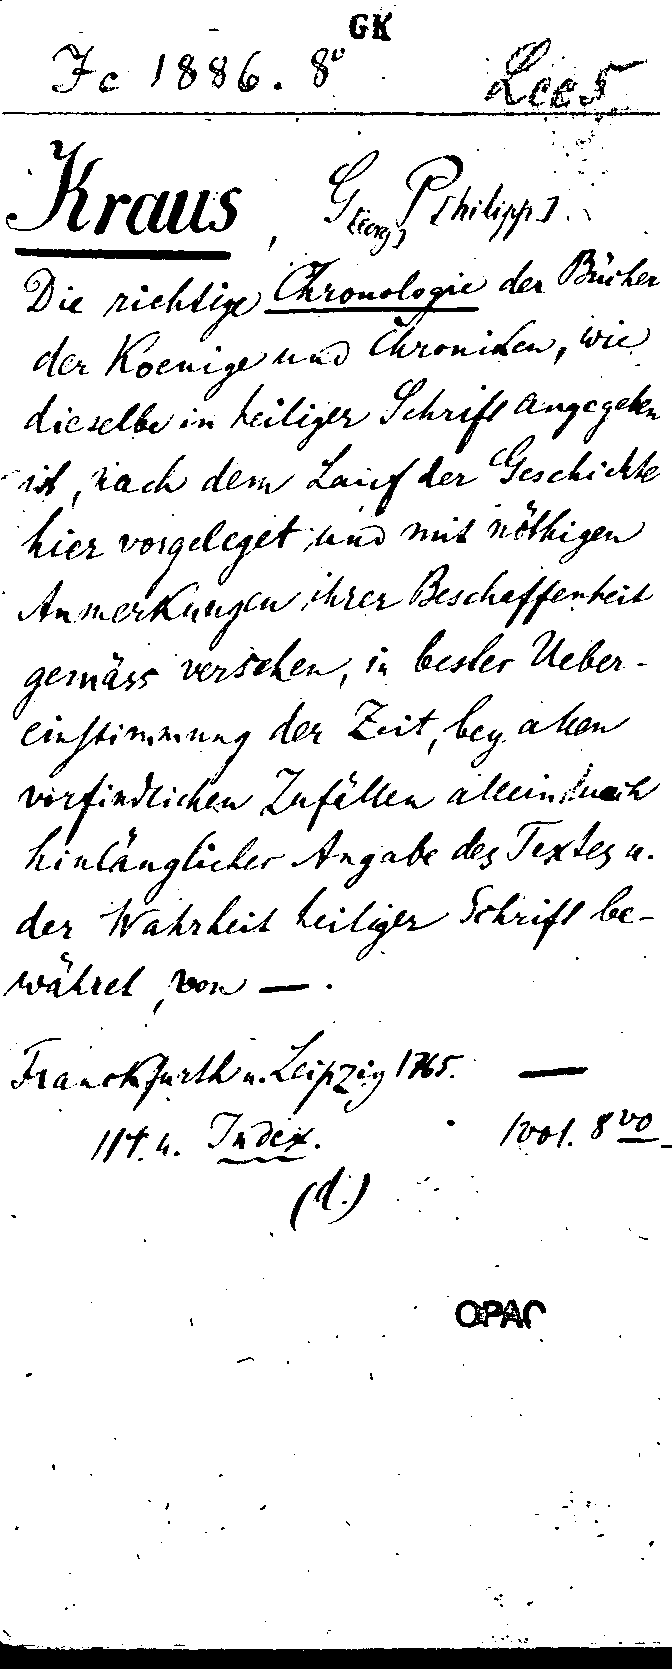 GK
Fc 1886. 8° Lee5
Kraus, G[eorg] P[hilipp].
Die richtige Chronologie der Bücher
der Koenige und Chroniken, wie
dieselbe in heiliger Schrift angegeben
ist, nach dem Lauf der Geschichte
hier vorgeleget und mit nöthigen
Anmerkungen ihrer Beschaffenheit
gemäss versehen, in bester Ueber-
einstimmung der Zeit, bey allen
vorfindlichen Zufällen allein nach
hinlänglicher Angabe des Textes u.
der Wahrheit heiliger Schrift be-
währet, von — .
Franckfurth u. Leipzig 1765. —
11 t. u. Index. 1 vol. 8vo
(d.)
OPAC